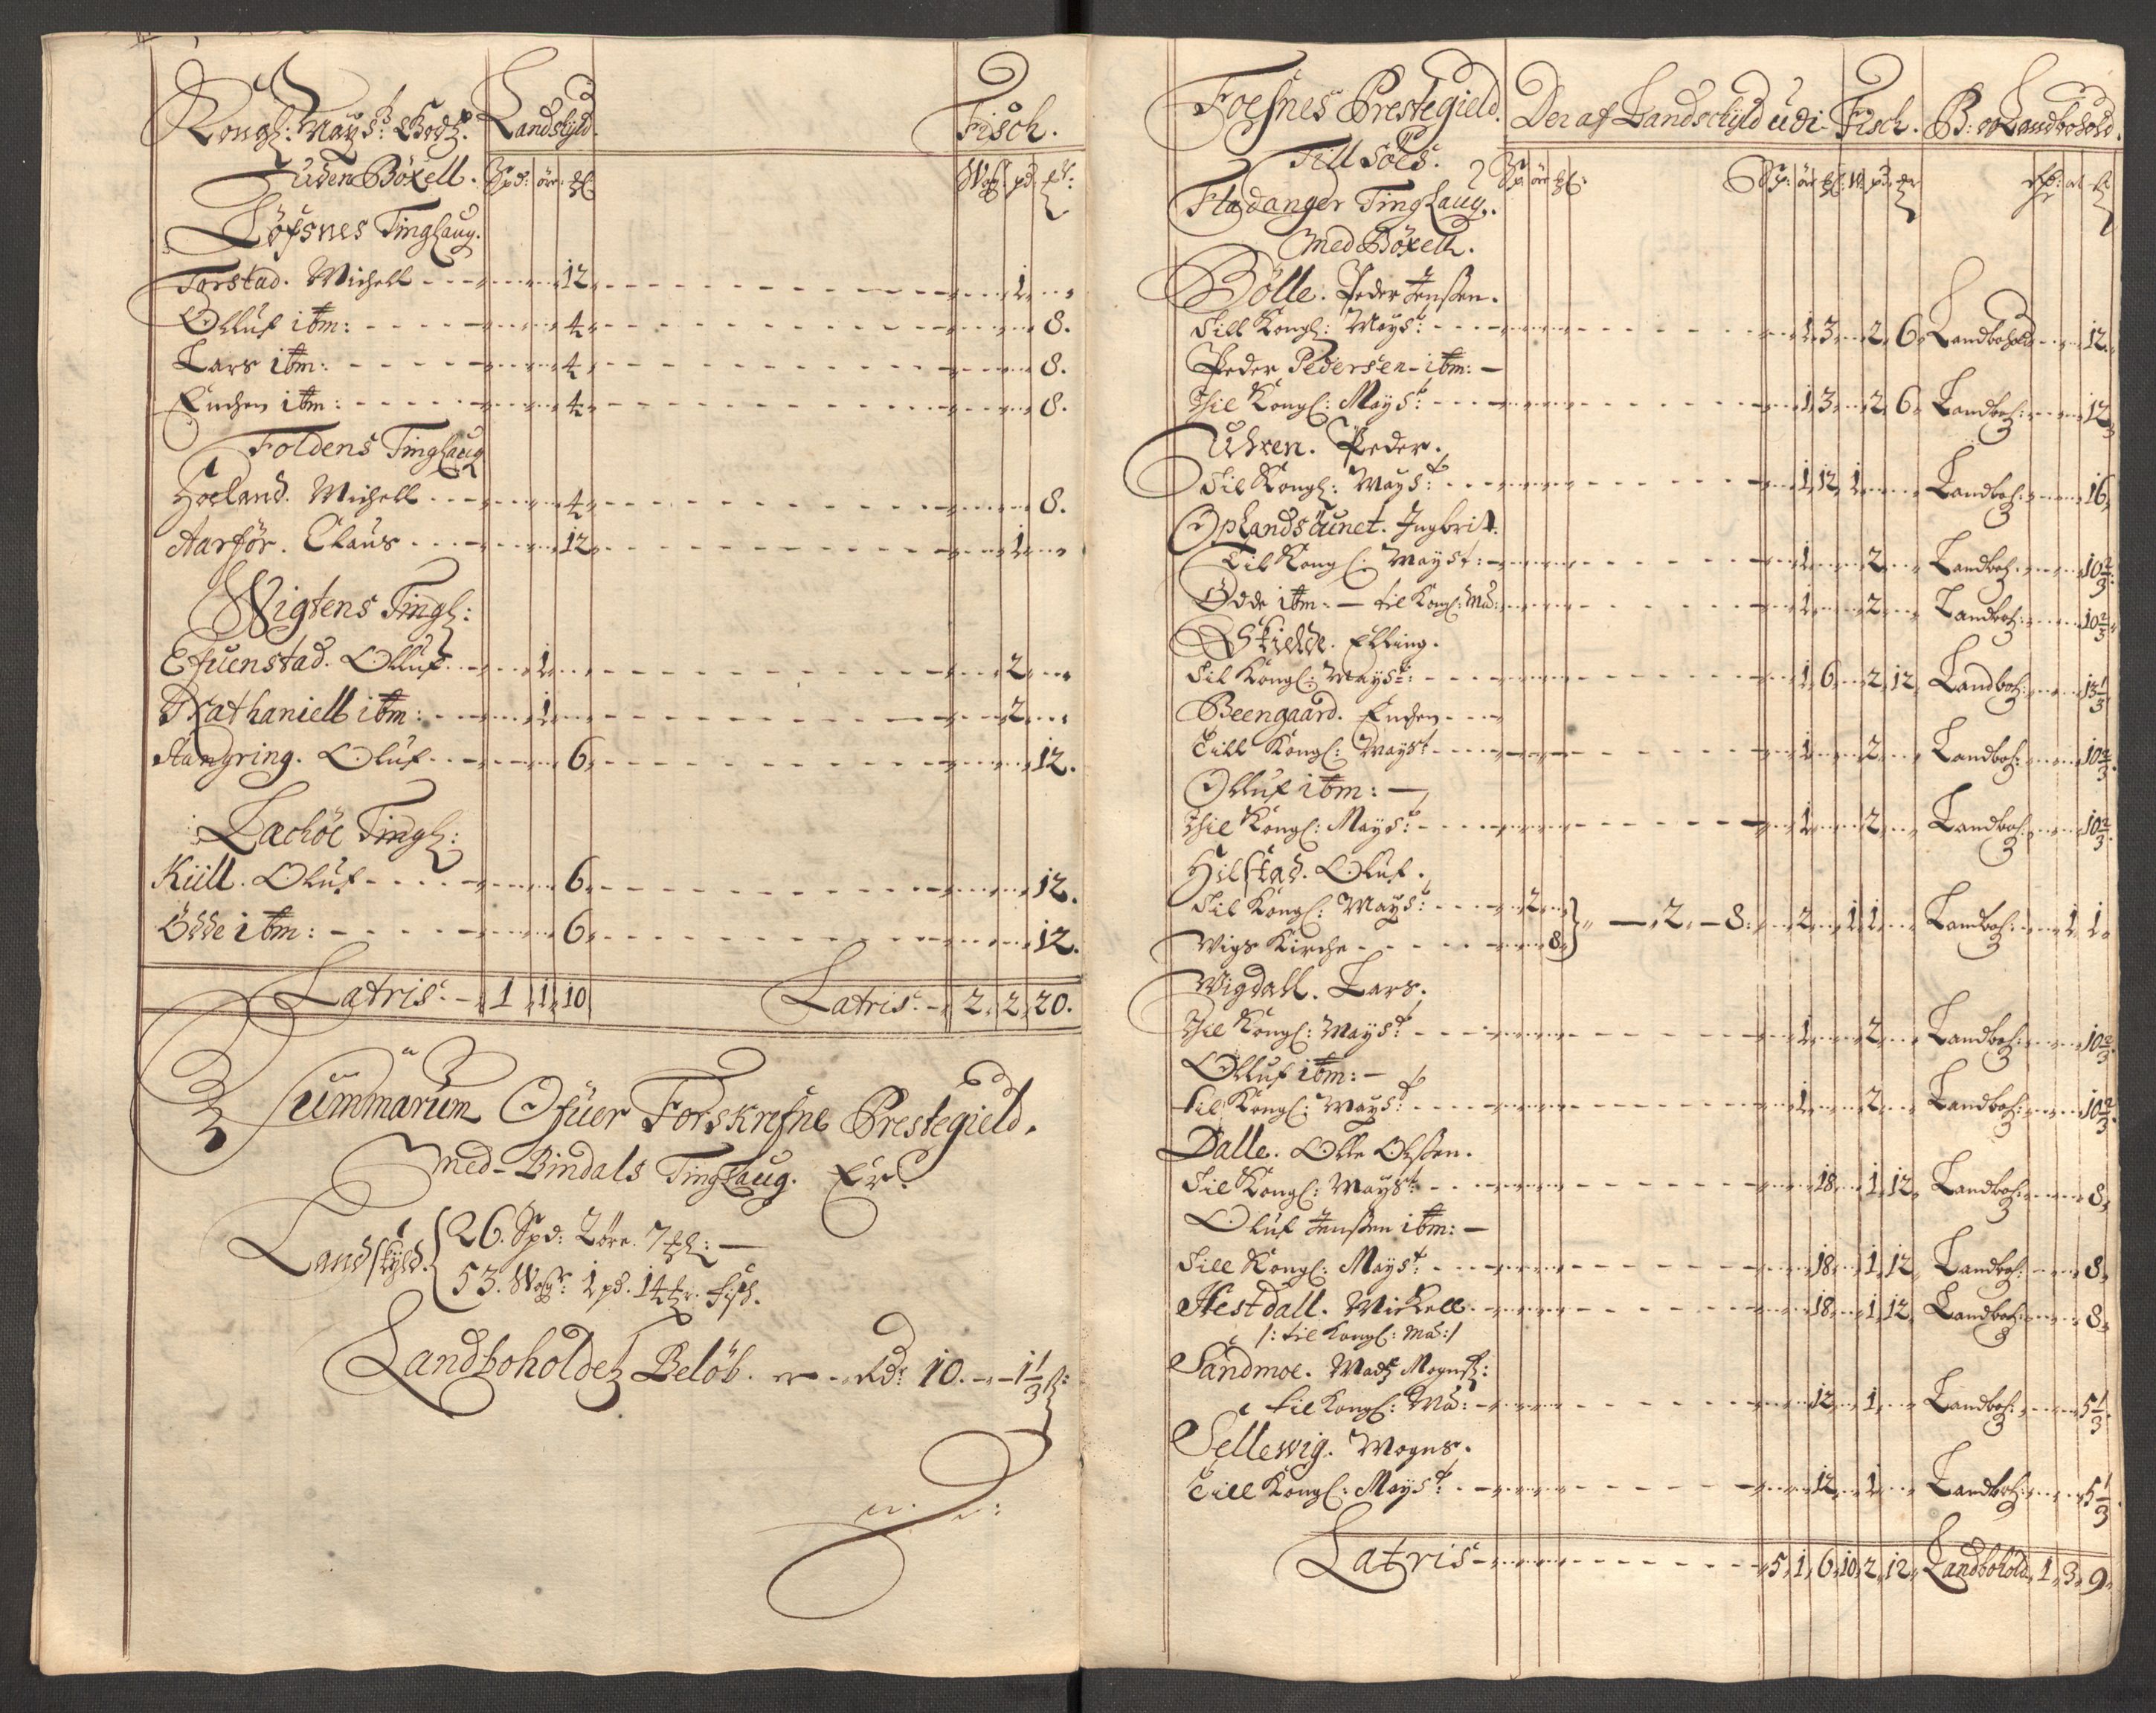 Kongl: Mayst: Godtz. Landskyld. Fisch.
Uden Böxell. Spd: öre. Wog: pd:
Löfsnes Tinghaug.
Torstad. Michell 12 1
Olluf itm: 4 8.
Lars itm: 4 8.
Enchen itm: 4 8.
Foldens Tinghaug
Høeland. Michell 4 8.
Aarför. Claus 12 1
Wigtens Tingh:
Efuenstad. Olluf 1 2
Nathaniell itm: 1 2
Aangring. Oluf 6 12.
Lachöe Tingh:
Kiill. Oluf 6 12.
Odde itm: 6 12.
Latris 1 1 10 Latris 2 2 20.
Summarum Ofuer Forskrefne Prestegield.
med Bindals Tinghaug. Er
Landskyld. 26. Spd: 2 öre. 7
53. Wog: 1 pd. 14 Fisch.
Landboholdet Belöb. er Rd: 10. 1 1/3
Foesnes Prestegield. Der af Landschyld udi Fisch. B: Landbohold.
Till Söes.
Fladanger Tinghaug.
med Böxell.
Bölle. Peder Jenssen.
Till Kongl: Mayst: 1 3 2 6 Landbohold 12
Peder Pedersen itm:
Thil Kongl: Mayst: 1 3 2 6 Landboh: 12
Uhren. Peder.
Til Kongl: Mayst: 1 12 1 Landboh: 16
Oplandsaunet. Ingbrit
Til Kongl: Mayst: 1 2 Landboh: 10 2/3
Odde itm: til Kongl: Ma: 1 2 Landboh: 10 2/3
Skielde. Elling.
Til Kongl: Mayst: 1 6 2 12 Landboh: 13 1/3
Beengaard. Enchen
Till Kongl: Mayst 1 2 Landboh: 10 2/3
Olluf itm:
Thil Kongl: Mayst: 1 2 Landboh: 10 2/3
Hilstad. Oluf.
Til Kongl: Mayst: 2
Wigs Kirche 8 } 2 8 2 1 1 Landboh: 1 1
Wigdall. Lars.
Thil Kongl: Mayst 1 2 Landboh: 10 2/3
Olluf itm:
til Kongl: Mayst: 1 2 Landboh: 10 2/3
Dalle. Olle Olssen.
Til Kongl: Mayst: 18 1 12 Landboh: 8
Oluf Jenssen itm:
Till Kongl: Mayst: 18 1 12 Landboh: 8
Hestdall. Mickell 18 1 12 Landboh: 8
/: til Kongl: Ma: /
Sandmoe. Madz Mognsz:
til Kongl: Ma: 12 1 Landboh: 5 1/3
Sellewig. Mogns.
Till Kongl: Mayst: 12 1 Landboh: 5 1/3
Latris 5 1 6 10 2 12 Landbohold 1 3 9